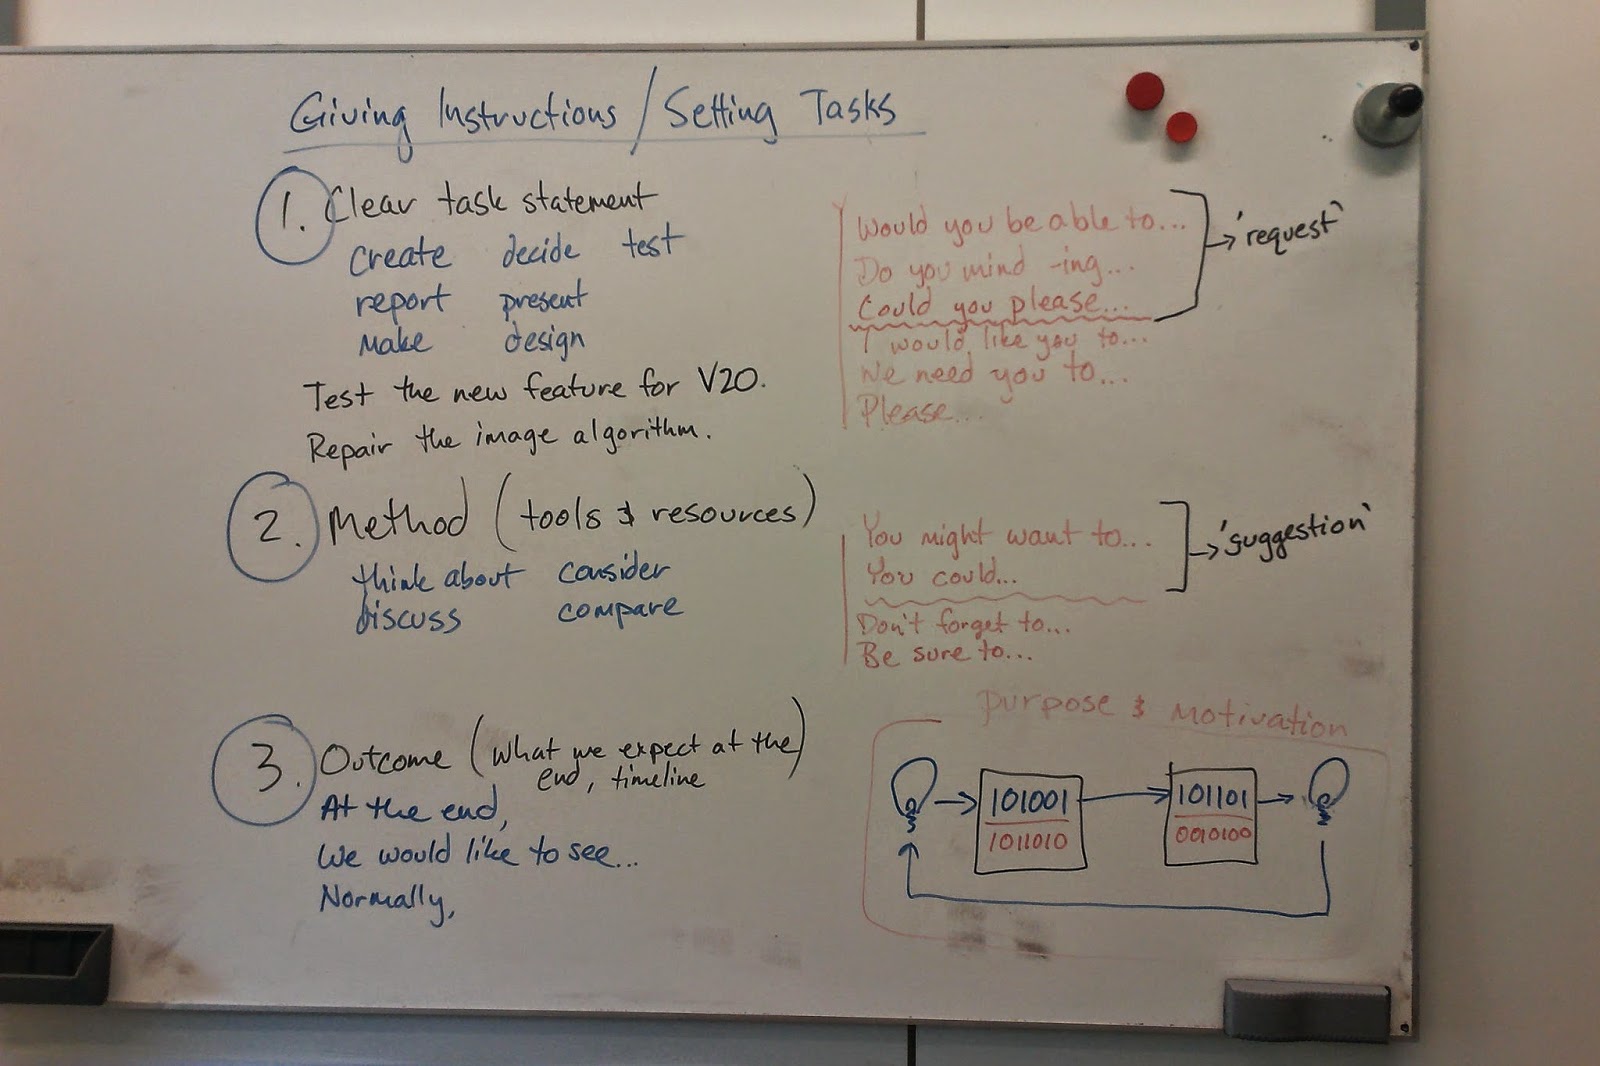 Giving Instructions / Setting Tasks
1. Clear task statement
create decide test
report present
make design
Test the new feature for V20.
Repair the image algorithm.
Would you be able to...
Do you mind -ing...
Could you please...
→ 'request'
I would like you to...
We need you to...
Please...
2. Method (tools & resources)
think about consider
discuss compare
You might want to...
You could...
→ 'suggestion'
Don't forget to...
Be sure to...
3. Outcome (what we expect at the
end, timeline)
At the end,
We would like to see...
Normally,
Purpose & Motivation
101001
1011010
101101
0010100